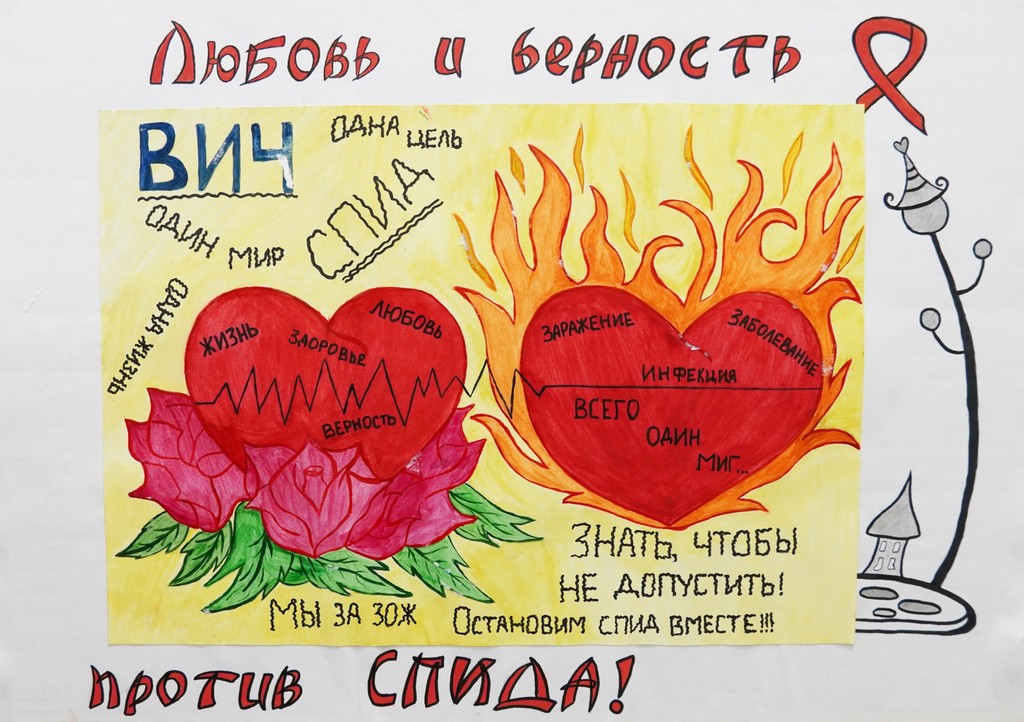 Любовь и верность
ВИЧ
ОДНА
ЦЕЛЬ
СПИД
ОДИН
МИР
ОДНА ЖИЗНЬ
ЖИЗНЬ
ЗДОРОВЬЕ
ЛЮБОВЬ
ВЕРНОСТЬ
ЗАРАЖЕНИЕ
ЗАБОЛЕВАНИЕ
ИНФЕКЦИЯ
ВСЕГО
ОДИН
МИГ...
ЗНАТЬ, ЧТОБЫ
НЕ ДОПУСТИТЬ!
МЫ ЗА ЗОЖ
ОСТАНОВИМ СПИД ВМЕСТЕ!!!
против СПИДА!